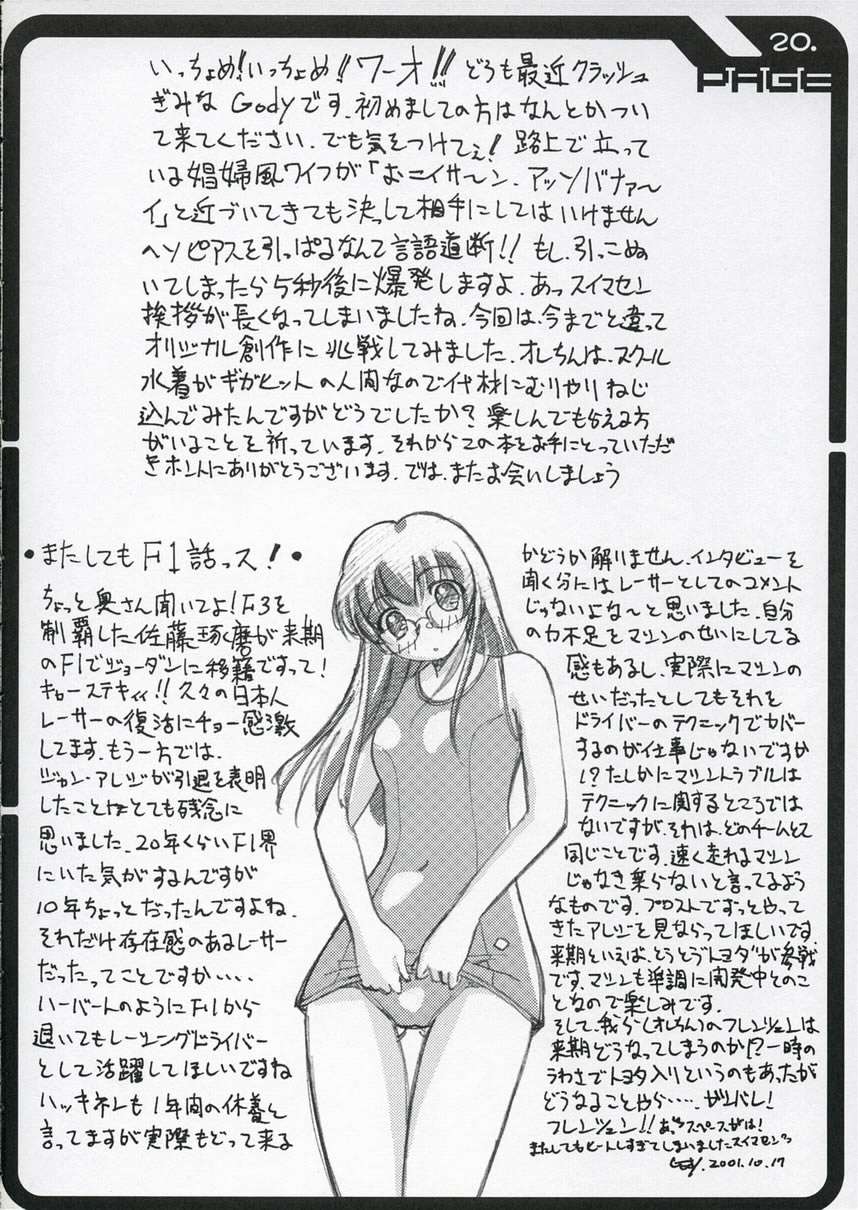 20.
PAGE
いっちょめ!いっちょめ!!ワーオ!!! どうも最近クラッシュ
ぎみな Godyです.初めましての方はなんとかつい
て来てください.でも気をつけてぇ! 路上で立って
いる娼婦風ワイフが「おニイサ〜ン.アッソバナァ〜
イ」と近づいてきても決っして相手にしてはいけません
ヘソピアスを引っぱるなんて言語道断!! もし.引っこぬ
いてしまったら5秒後に爆発しますよ.あっスイマセン
挨拶が長くなってしまいましたね.今回は.今までと違って
オリジナル創作に挑戦してみました.オレちんは.スクール
水着がギガヒットの人間なので代材にむりやりねじ
込んでみたんですがどうでしたか?楽しんでもらえる方
がいることを祈っています.それからこの本をお手にとっていただ
きホントにありがとうございます.では.またお会いしましょう
・またしてもF1話っス!・
ちょっと奥さん聞いてよ!F3を
制覇した佐藤琢磨が来期
のF1でジョーダンに移籍ですって!
キャーステキィィ!!久々の日本人
レーサーの復活にチョー感激
してます.もう一方では.
ジャン・アレジが引退を表明
したことはとても残念に
思いました.20年くらいF1界
にいた気がするんですが
10年ちょっとだったんですよね.
それだけ存在感のあるレーサー
だったってことですか・・・・
ハーバートのようにF1から
退いてもレーシングドライバー
として活躍してほしいですね
ハッキネンも1年間の休養と
言ってますが実際もどって来る
かどうか解りません.インタビューを
聞く分にはレーサーとしてのコメント
じゃないよな〜と思いました.自分
の力不足をマシンのせいにしてる
感もあるし.実際にマシンの
せいだったとしてもそれを
ドライバーのテクニックでカバー
するのが仕事じゃないですか
!?たしかにマシントラブルは
テクニックに関するところでは
ないですが.それは.どのチームとて
同じことです.速く走れるマシン
じゃなき乗らないと言ってるよう
なものです.プロストでずっとやって
きたアレジを見ならってほしいです.
来期といえば.とうとうトヨタが参戦
です.マシンも準調に開発中とのこ
となので楽しみです.
そして.我ら(オレちん)のフレンツェンは
来期どうなってしまうのか!?一時の
うわさでトヨタ入りというのもあったが
どうなることやら・・・・.ガンバレ!
フレンツェン!! あっスペースがは!
またしてもヒートしすぎてしまいましたスイマセン
Gody.2001.10.17